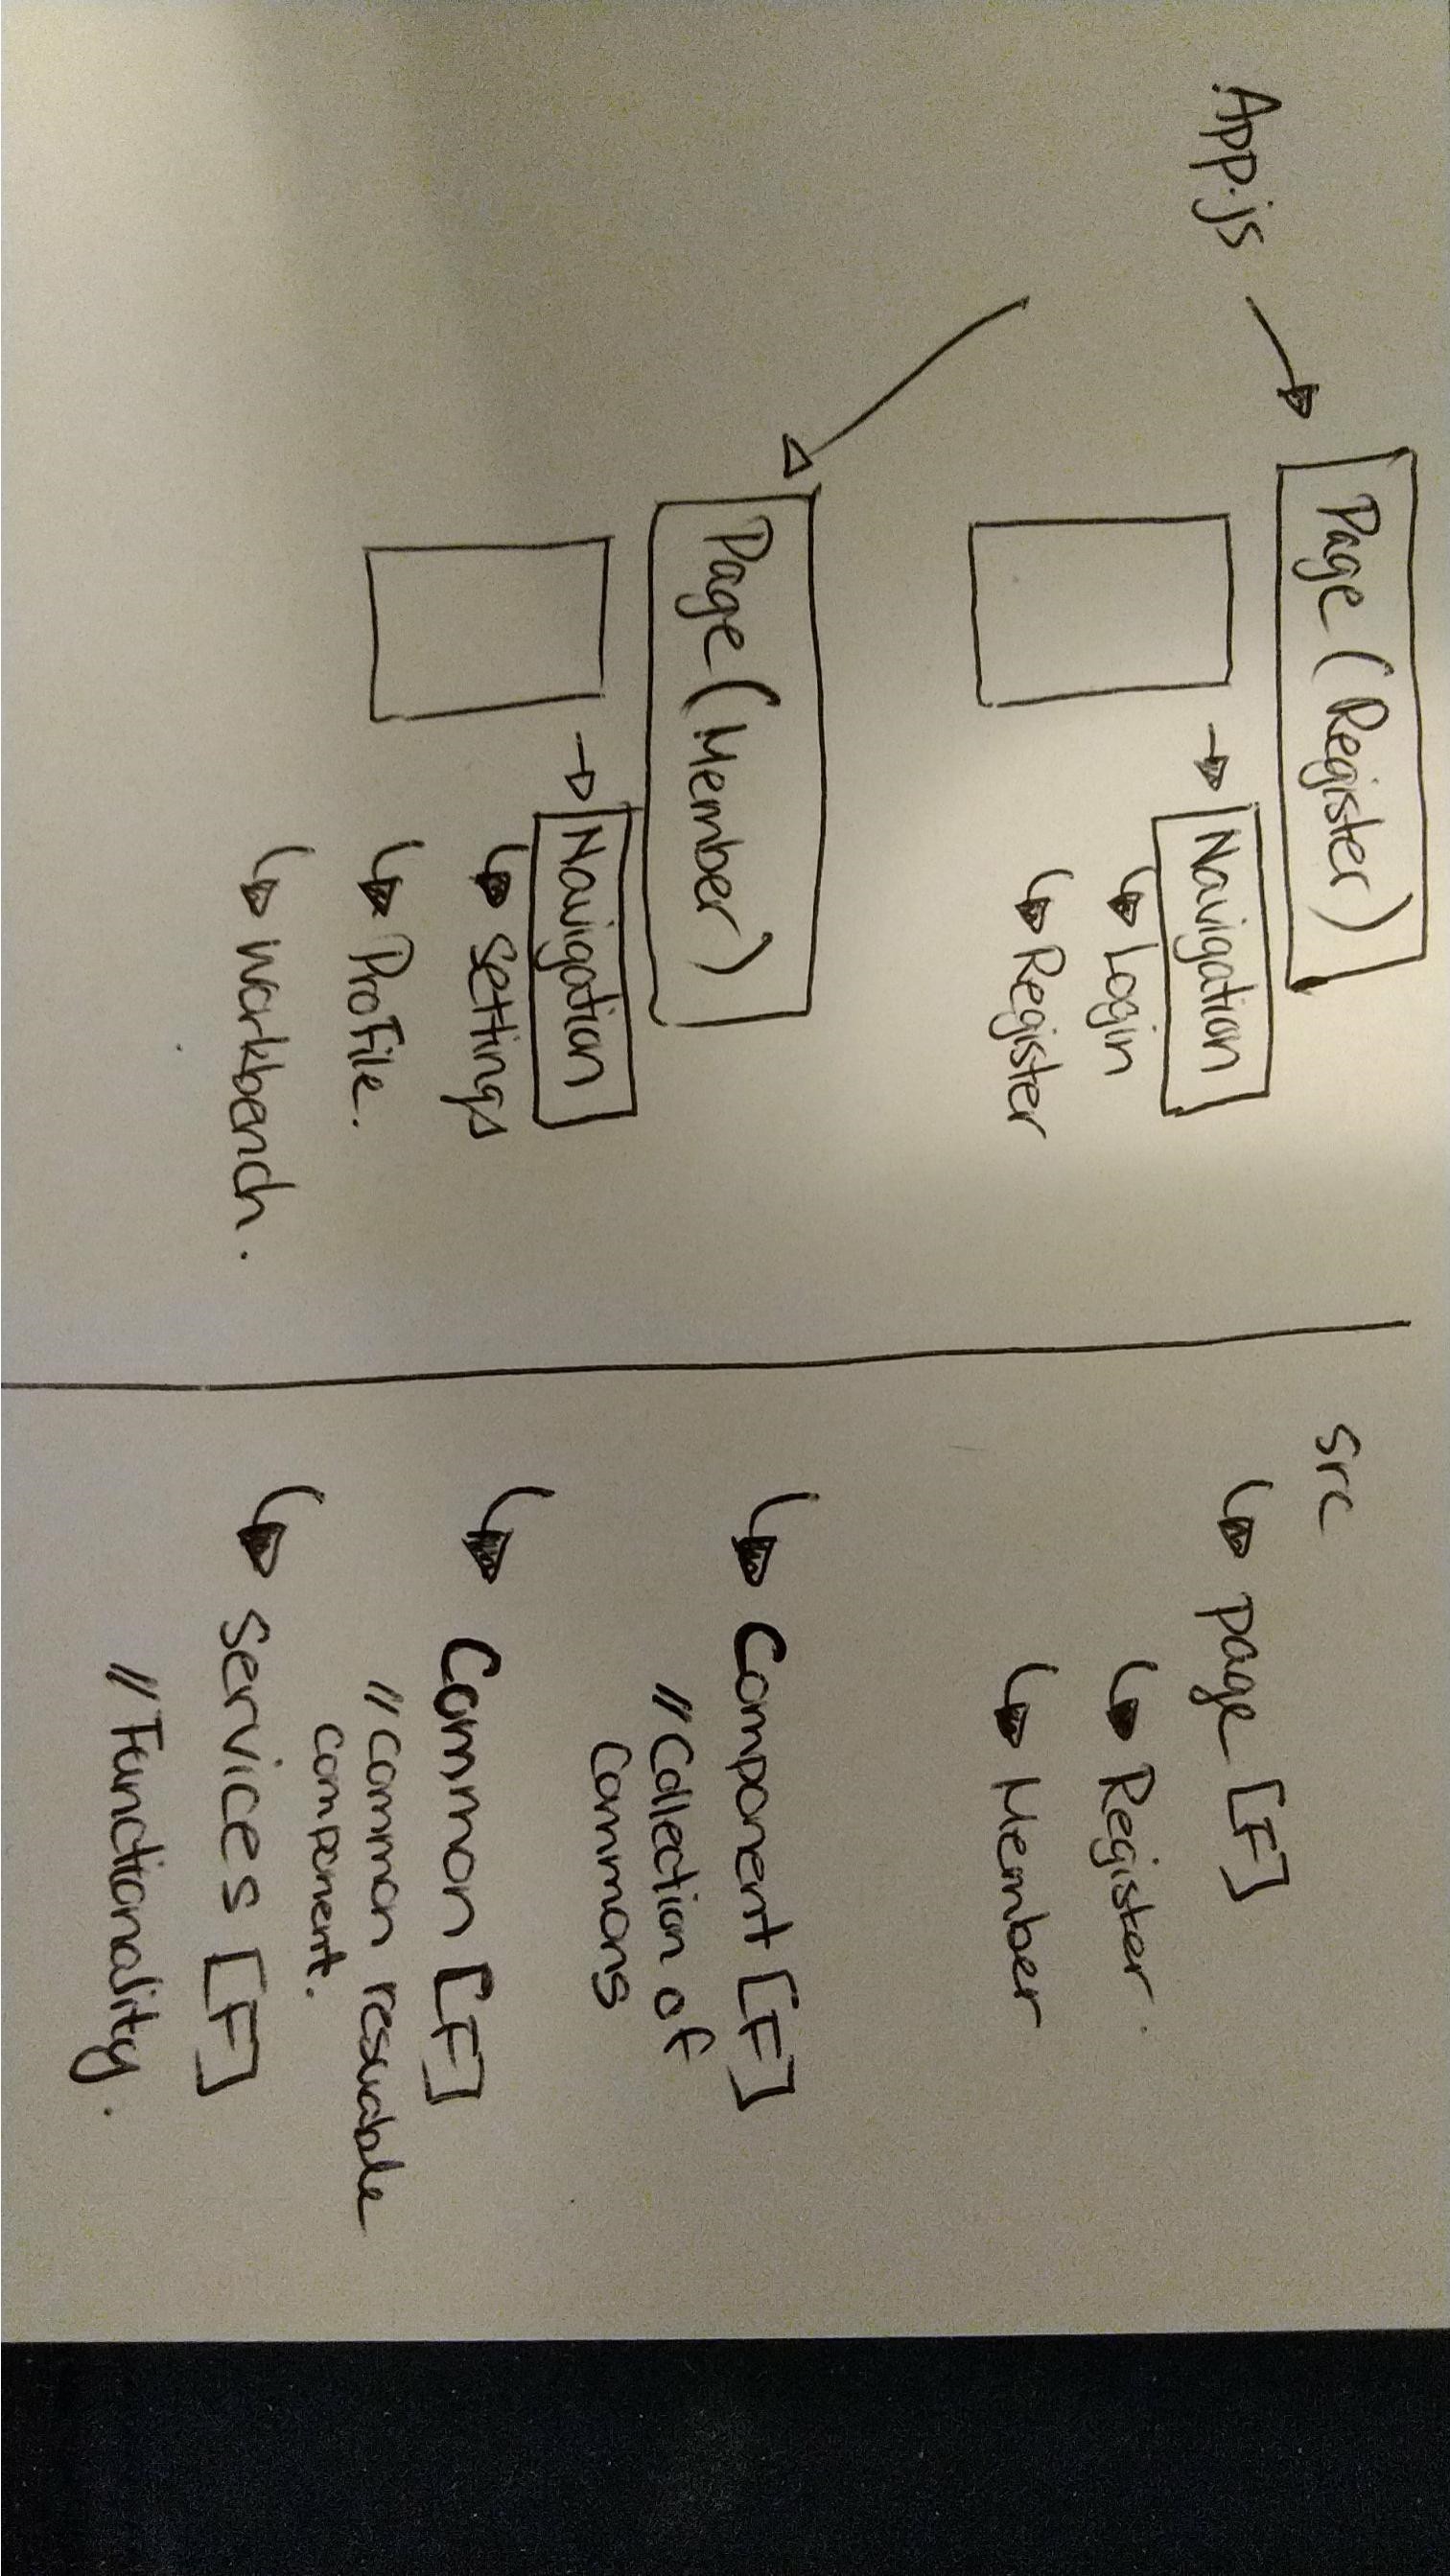 App.js
Page (Register)
Navigation
Login
Register
Page (Member)
Navigation
Settings
Profile.
Workbench.
src
page [F]
Register
Member
Component [F]
// Collection of
Commons
Common [F]
// common resuable
component.
Services [F]
// Functionality.